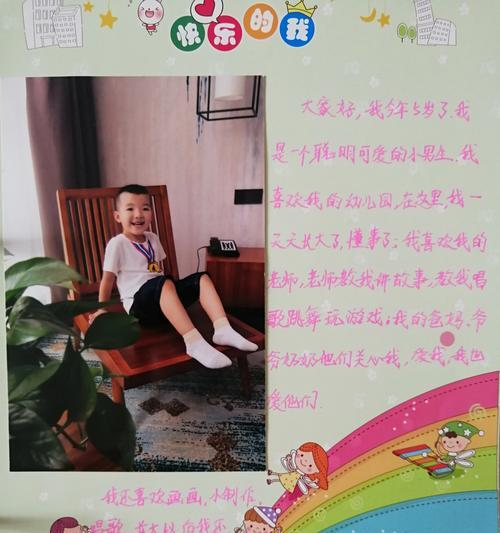 快乐的我
大家好,我今年5岁了.我
是一个聪明可爱的小男生.我
喜欢我的幼儿园,在这里,我一
天天长大了,懂事了;我喜欢我的
老师,老师教我讲故事,教我唱
歌跳舞玩游戏;我的爸妈.爷
爷奶奶他们关心我,爱我,我也
爱他们.
我还喜欢画画,小制作,
唱歌.长大以后我还